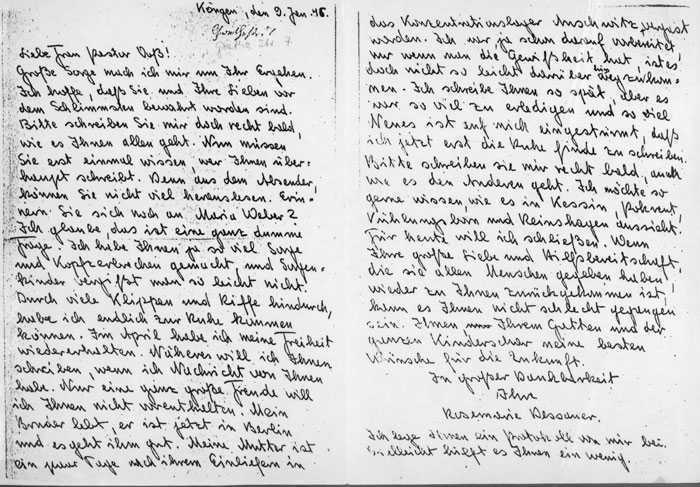 Köngen, den 9. Jan. 46.
Liebe Frau Pastor Duß!
Große Sorge mach ich mir um Ihr Ergehen.
Ich hoffe, daß Sie und Ihre Lieben vor
dem Schlimmsten bewahrt worden sind.
Bitte schreiben Sie mir doch recht bald,
wie es Ihnen allen geht. Nun müssen
Sie erst einmal wissen, wer Ihnen über-
haupt schreibt. Denn aus dem Absender,
können Sie nicht viel herauslesen. Erin-
nern Sie sich noch an Maria Weber?
Ich glaube, das ist eine ganz dumme
Frage. Ich habe Ihnen ja so viel Sorge
und Kopfzerbrechen gemacht, und Sorgen-
kinder vergißt man so leicht nicht.
Durch viele Klippen und Riffe hindurch,
habe ich endlich zur Ruhe kommen
können. Im April habe ich meine Freiheit
wiedererhalten. Näheres will ich Ihnen
schreiben, wenn ich Nachricht von Ihnen
habe. Nur eine ganz große Freude will
ich Ihnen nicht vorenthalten. Mein
Bruder lebt, er ist jetzt in Berlin
und es geht ihm gut. Meine Mutter ist
ein paar Tage nach ihrem Einliefern in
das Konzentrationslager Auschwitz vergast
worden. Ich war ja schon darauf vorbereitet,
nur wenn man die Gewißheit hat, ist es
doch nicht so leicht darüber hinwegzukom-
men. Ich schreibe Ihnen so spät, aber es
war so viel zu erledigen und so viel
Neues ist auf mich eingestürmt, daß
ich jetzt erst die Ruhe finde zu schreiben.
Bitte schreiben sie mir recht bald, auch
wie es den Anderen geht. Ich möchte so
gerne wissen, wie es in Kessin, Pokrent,
Kühlungsborn und Reinshagen aussieht.
Für heute will ich schließen. Wenn
Ihre große Liebe und Hilfsbereitschaft,
die sie allen Menschen gegeben haben,
wieder zu Ihnen zurückgekommen ist,
kann es Ihnen nicht schlecht gegangen
sein. Ihnen Ihrem Gatten und der
ganzen Kinderschar meine besten
Wünsche für die Zukunft.
In großer Dankbarkeit
Ihre
Rosemarie Dessauer.
Ich lege Ihnen ein Protokoll von mir bei.
Vielleicht hilft es Ihnen ein wenig.